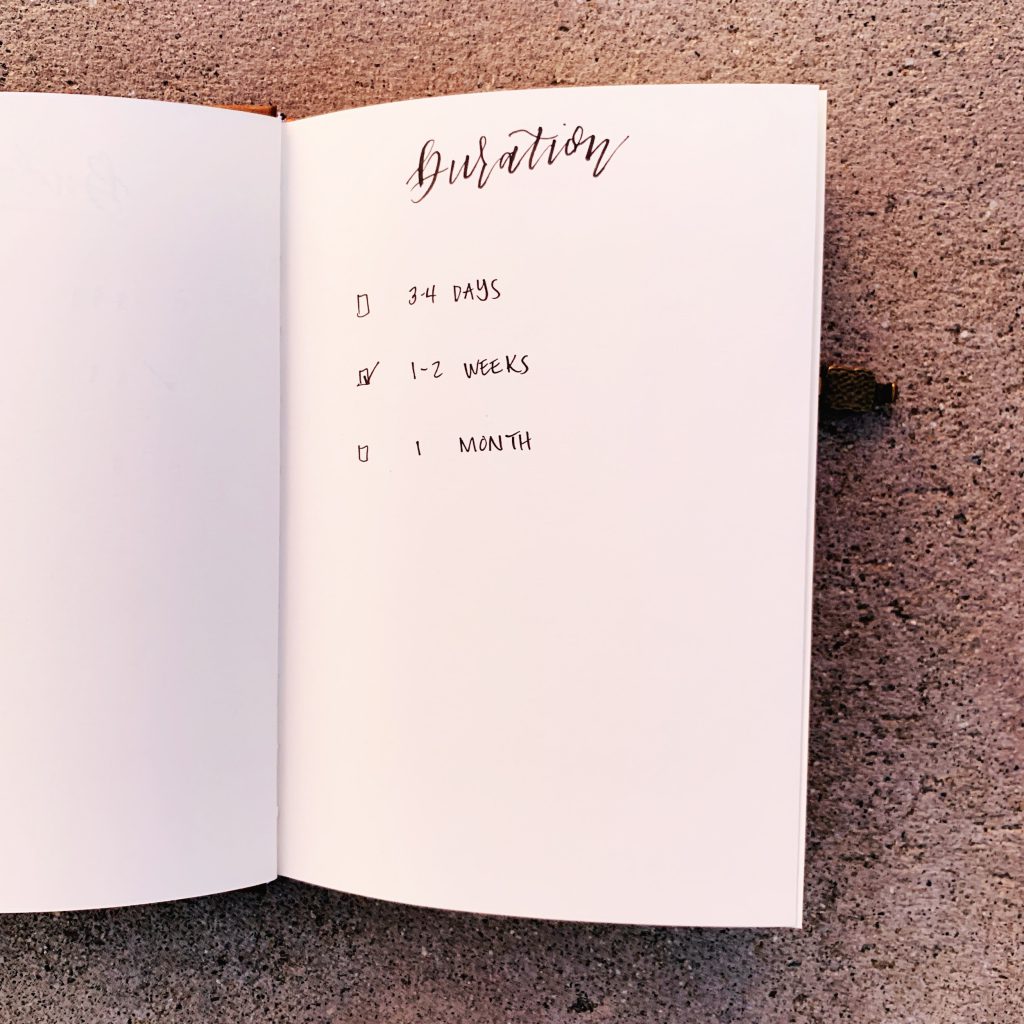 Duration
3-4 DAYS
1-2 WEEKS
1 MONTH